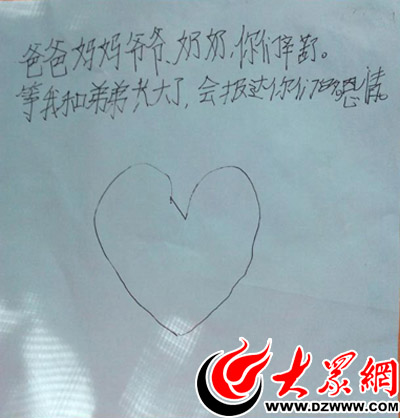 爸爸妈妈爷爷、奶奶,你们辛苦。
等我和弟弟长大了,会报达你们的恩情。
大眾網
WWW.DZWWW.COM